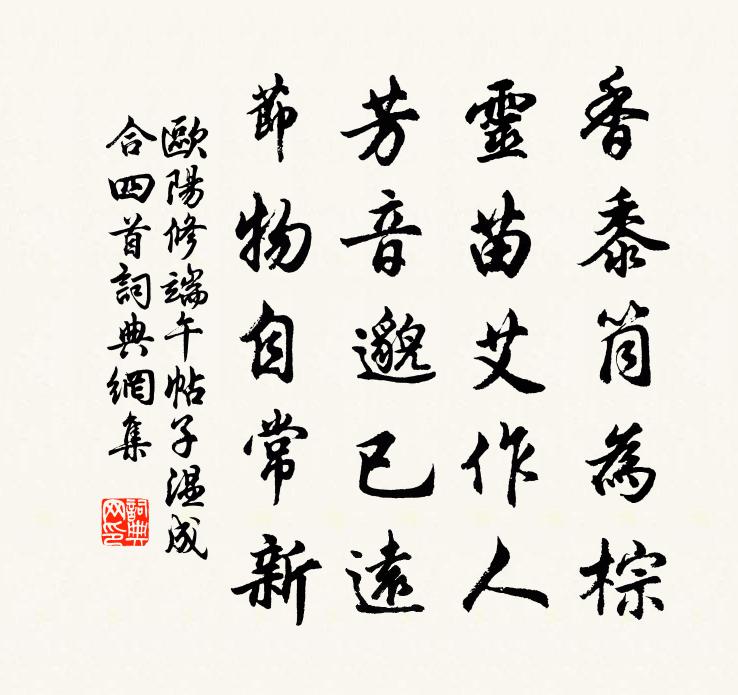 香黍筒為棕
靈苗艾作人
芳音邈已遠
節物自常新
歐陽修端午帖子温成
合四首詞典網集
詞典
网印